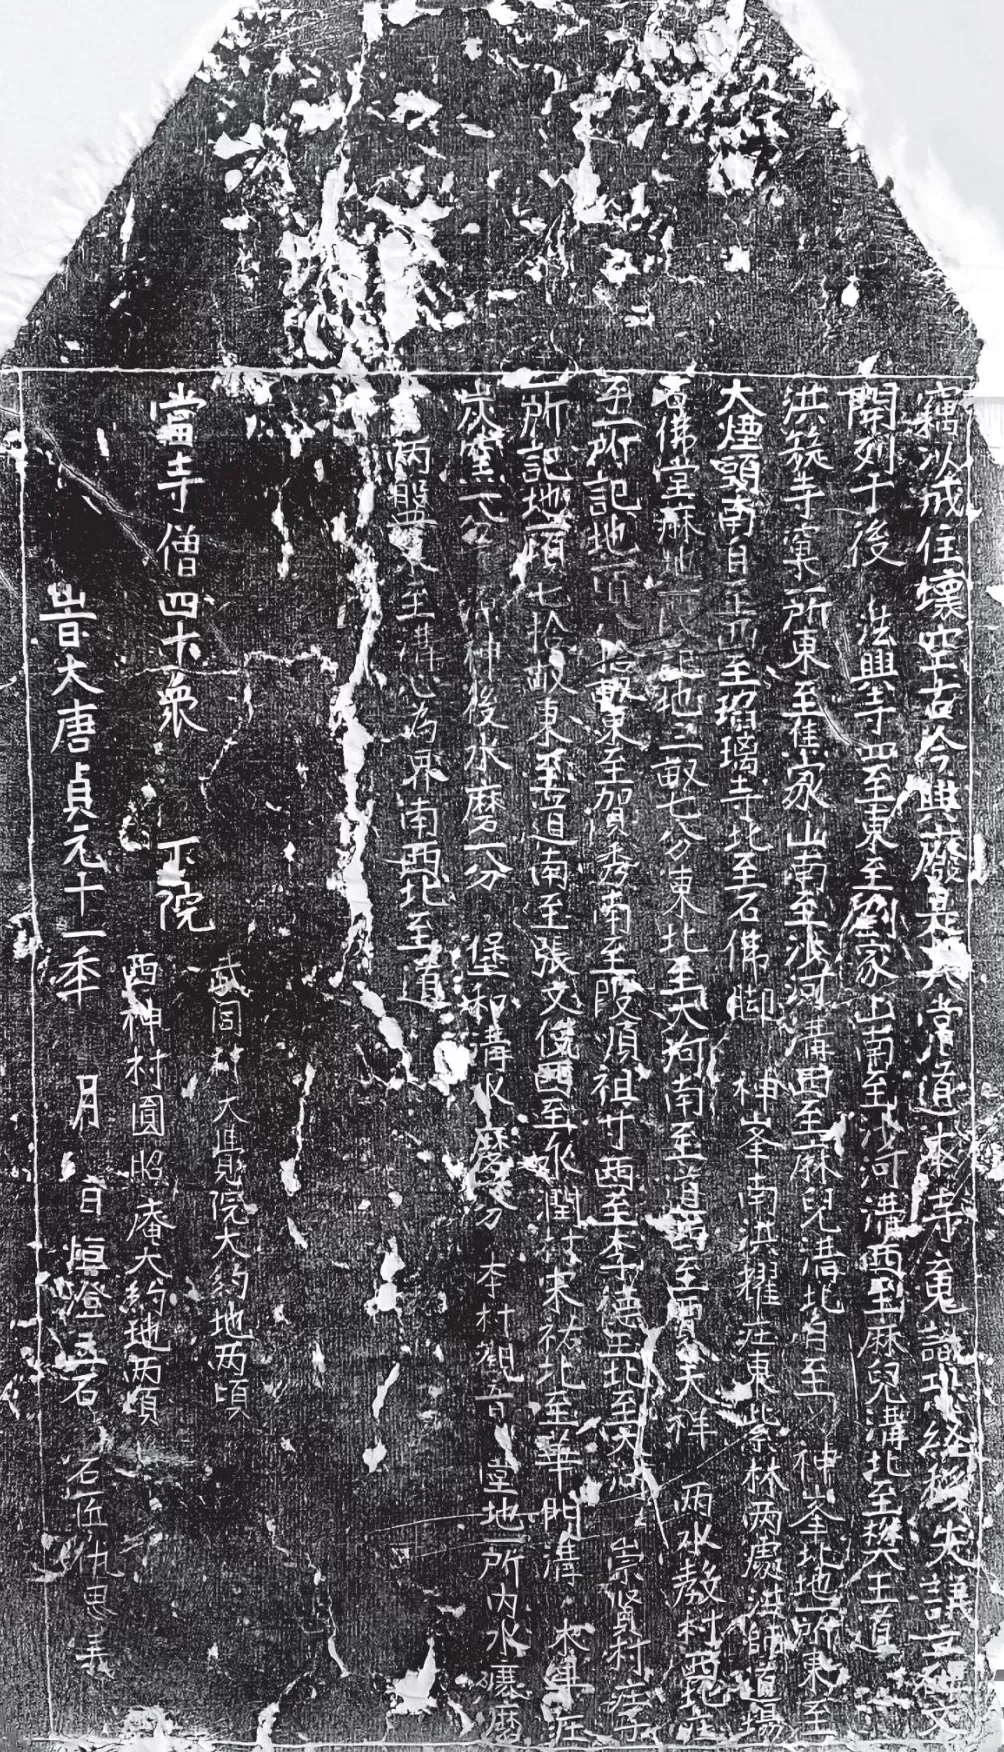 竊以成住壞空古今興廢是其常道本寺竟諸經秘失議立碑文
開列于後 法興寺四至東至劉家山南至沙河溝西到麻兒溝北至樊王道
洪簸寺窠一所東至崔家山南至沙河溝西至麻兒溝北自至 神峯北地一所東至
大煙頭南自至西至瑠璃寺北至石佛脚 神峯南洪耀庄東紫林两處法師道場
佛堂麻地地二畝七分東北至大河南至道西至賈天祥 两水敖村西北庄
至一所記地一頃畝東至賀秀南至段順祖廿西至李德玉北至大河 崇賢村庄子
一所記地一頃七拾畝東至道南至張文俊西至永潤村宋祐北至華門溝
炭窯一分 神後水磨一分 堡和溝水磨一分 李村觀音堂地一所内水磨
两盤東至溝心為界南西北至道
當寺僧四十衆 下院
武固村大覺院大約地两頃
西神村圓昭庵大約地两頃
旹大唐貞元十一年 月 日恒澄立石 石匠仇思義